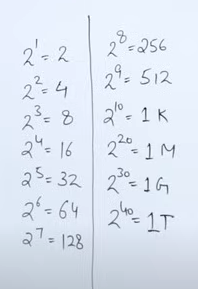 2¹ = 2
2² = 4
2³ = 8
2⁴ = 16
2⁵ = 32
2⁶ = 64
2⁷ = 128
2⁸ = 256
2⁹ = 512
2¹⁰ = 1 K
2²⁰ = 1 M
2³⁰ = 1G
2⁴⁰ = 1T